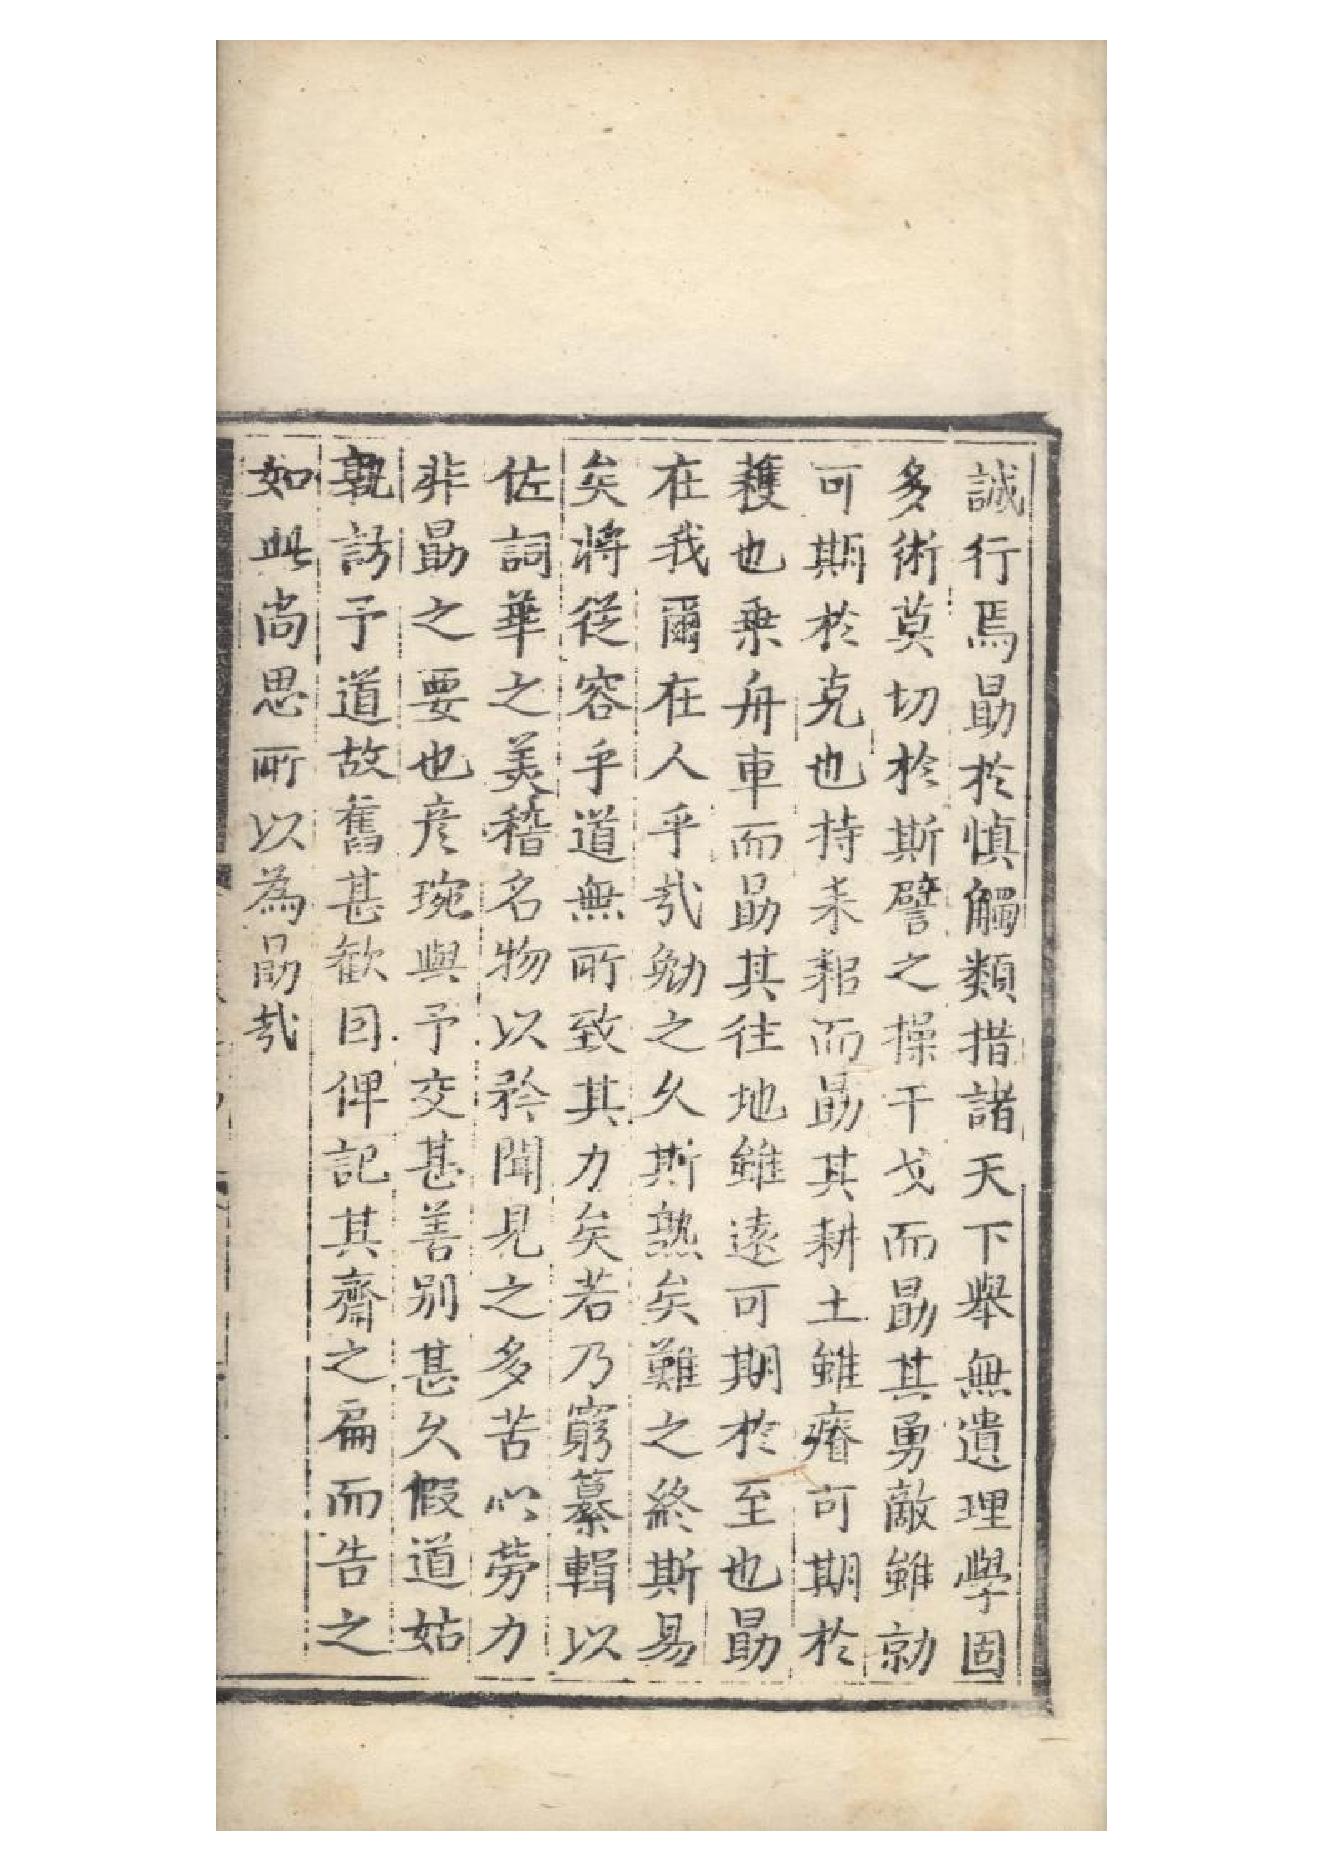 誠行焉勖於慎觸類措諸天下舉無遺理學固
多術莫切於斯譬之操干戈而勖其勇敵雖勍
可期於克也持耒耜而勖其耕土雖瘠可期於
穫也乗舟車而勖其往地雖遠可期於至也勖
在我爾在人乎㦲勉之久斯熟矣難之終斯易
矣将從容乎道無所致其力矣若乃窮纂輯以
佐詞華之美稽名物以矜聞見之多苦心勞力
非勖之要也彦琬與予交甚善別甚久假道姑
訪予道故舊甚歡因俾記其齋之扁而告之
如此尚思所以為勖㦲